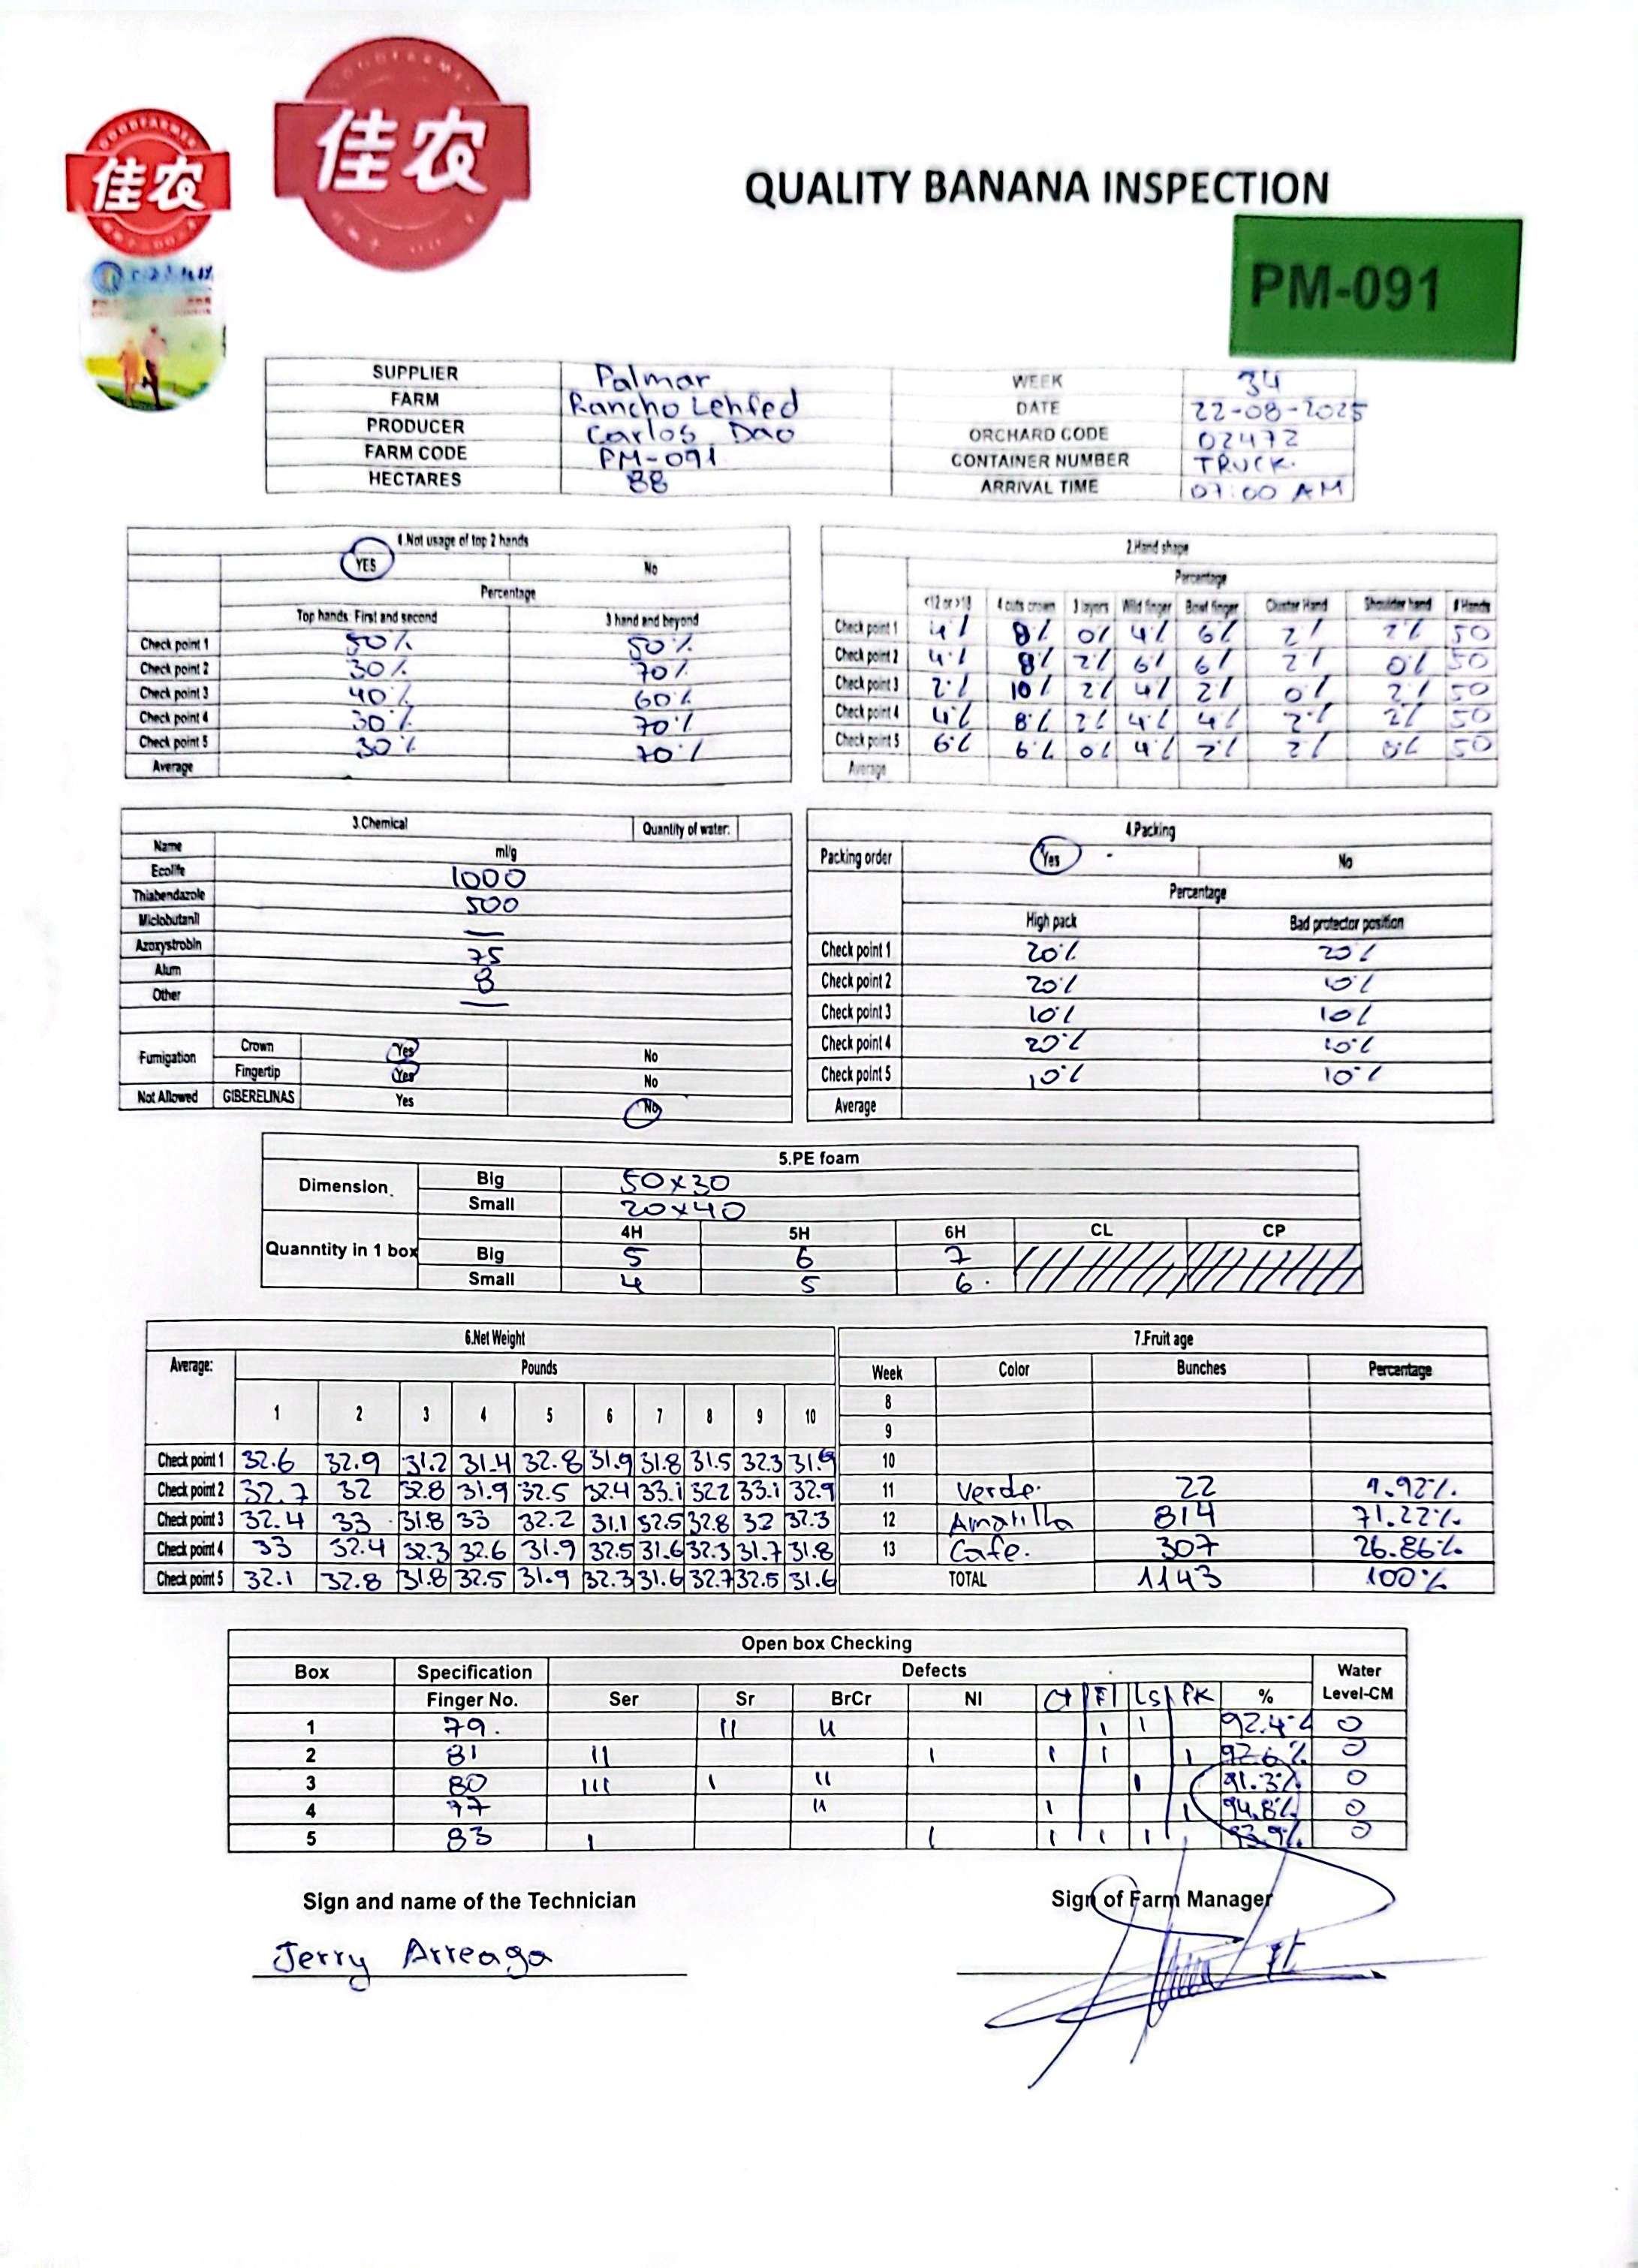 GOODFARMER
佳农
佳农
QUALITY BANANA INSPECTION
PM-091
SUPPLIER Palmar WEEK 34
FARM Rancho Lehfed DATE 22-08-2025
PRODUCER Carlos Dao ORCHARD CODE 02472
FARM CODE PM-091 CONTAINER NUMBER TRUCK.
HECTARES 88 ARRIVAL TIME 07:00 AM
1.Not usage of top 2 hands
YES No
Percentage
Top hands: First and second 3 hand and beyond
Check point 1 50% 50%
Check point 2 30% 70%
Check point 3 40% 60%
Check point 4 30% 70%
Check point 5 30% 70%
Average
2.Hand shape
Percentage
<12 or >18 4 cuts crown 3 layers Wild finger Bowl finger Cluster Hand Shoulder hand # Hands
Check point 1 4% 8% 0% 4% 6% 2% 2% 50
Check point 2 4% 8% 2% 6% 6% 2% 0% 50
Check point 3 2% 10% 2% 4% 2% 0% 2% 50
Check point 4 4% 8% 2% 4% 4% 2% 2% 50
Check point 5 6% 6% 0% 4% 2% 2% 0% 50
Average
3.Chemical Quantity of water:
Name ml/g
Ecolife 1000
Thiabendazole 500
Miclobutanil —
Azoxystrobin 75
Alum 8
Other —
Fumigation Crown Yes No
Fingertip Yes No
Not Allowed GIBERELINAS Yes No
4.Packing
Packing order Yes No
Percentage
High pack Bad protector position
Check point 1 20% 20%
Check point 2 20% 10%
Check point 3 10% 10%
Check point 4 20% 10%
Check point 5 10% 10%
Average
5.PE foam
Dimension. Big 50x30
Small 20x40
Quanntity in 1 box 4H 5H 6H CL CP
Big 5 6 7
Small 4 5 6.
6.Net Weight
Average: Pounds
1 2 3 4 5 6 7 8 9 10
Check point 1 32.6 32.9 31.2 31.4 32.8 31.9 31.8 31.5 32.3 31.9
Check point 2 32.7 32 32.8 31.9 32.5 32.4 33.1 32.2 33.1 32.9
Check point 3 32.4 33 31.8 33 32.2 31.1 32.5 32.8 32 32.3
Check point 4 33 32.4 32.3 32.6 31.9 32.5 31.6 32.3 31.7 31.8
Check point 5 32.1 32.8 31.8 32.5 31.9 32.3 31.6 32.7 32.5 31.6
7.Fruit age
Week Color Bunches Percentage
8
9
10
11 Verde. 22 1.92%
12 Amarilla 814 71.22%
13 Cafe. 307 26.86%
TOTAL 1143 100%
Open box Checking
Box Specification Defects Water
Finger No. Ser Sr BrCr NI Ct FI LS PK % Level-CM
1 79. II II I I 92.4% 0
2 81 II I I I I 92.6% 0
3 80 III I II I 91.3% 0
4 77 II I I 94.8% 0
5 83 I I I I I 93.9% 0
Sign and name of the Technician Sign of Farm Manager
Jerry Arreaga